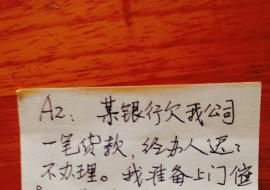 A2: 某银行欠我公司
一笔货款,经办人迟:
不办理。我准备上门催